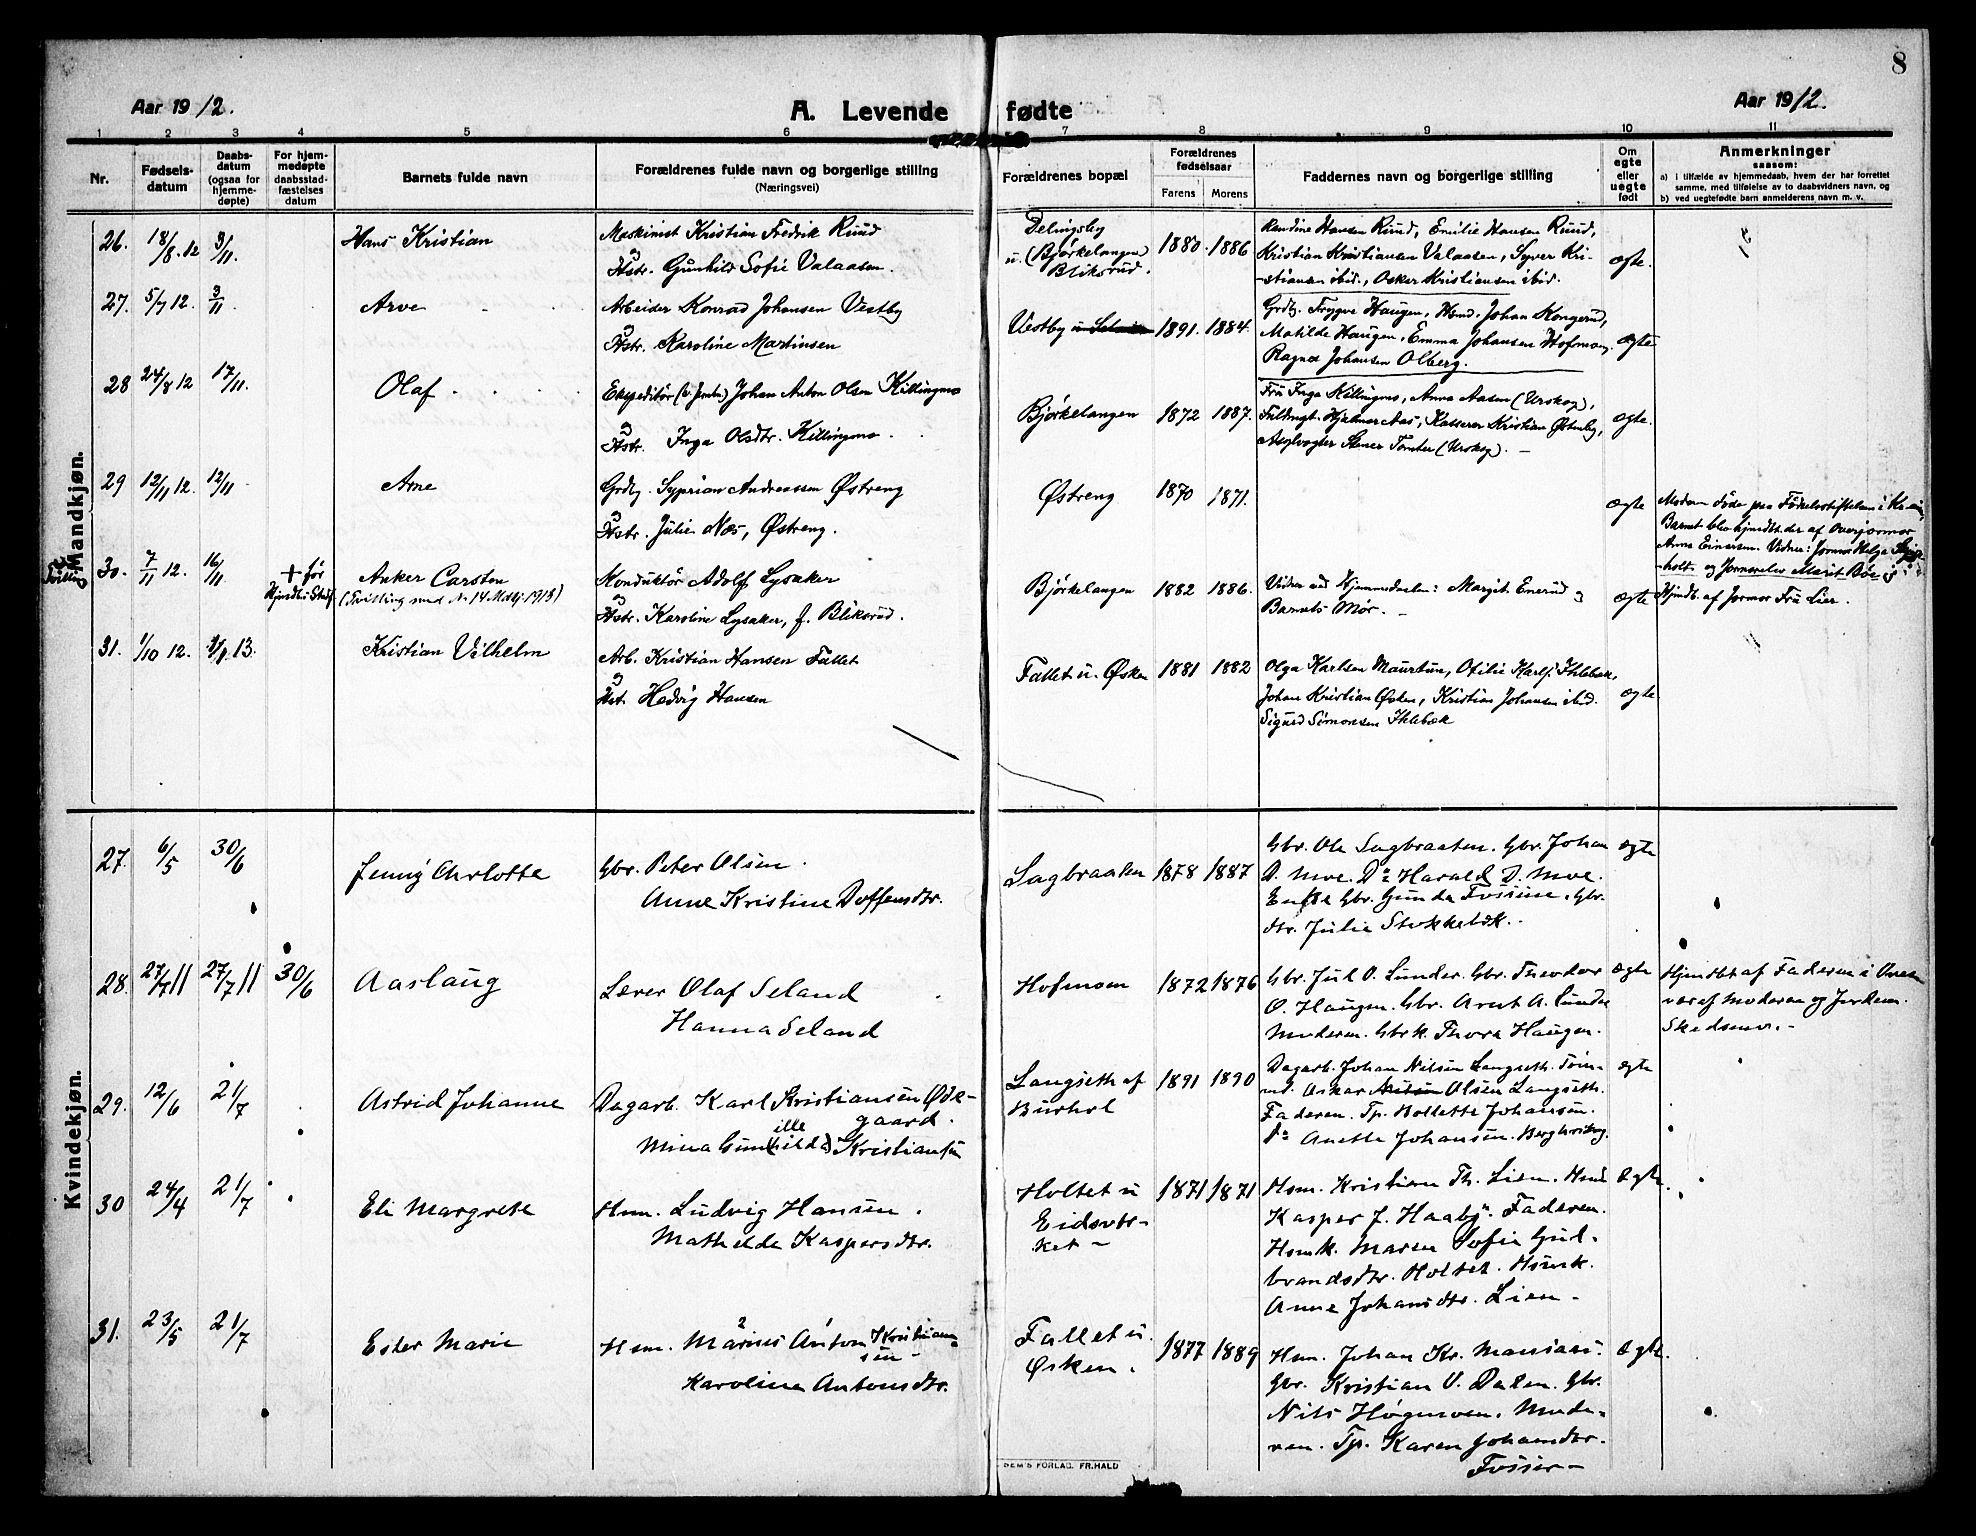 8
Aar 1912.
A. Levende fødte
Aar 1912.
1 2 3 4 5 6 7 8 9 10 11
Nr.
Fødsels-
datum
Daabs-
datum
(ogsaa for
hjemme-
døpte)
For hjem-
medøpte
daabsstad-
fæstelses
datum
Barnets fulde navn
Forældrenes fulde navn og borgerlige stilling
(Næringsvei)
Forældrenes bopæl
Forældrenes
fødselsaar
Farens Morens
Faddernes navn og borgerlige stilling
Om
egte
eller
uegte
født
Anmerkninger
saasom:
a) i tilfælde av hjemmedaab, hvem der har forrettet
samme, med tilføielse av to daabsvidners navn, og
b) ved uegtefødte barn anmelderens navn m. v.
Mandkjøn.
26. 18/8. 12 3/11. Hans Kristian
Maskinist Kristian Fredrik Ruud
Hstr. Gunhild Sofie Valaasen.
Delingsby
u. (Bjørkelangen)
Bliksrud.
1880 1886
Randine Hansen Ruud, Emilie Hansen Ruud,
Kristian Kristiansen Valaasen, Syver Kri-
-stiansen ibid., Oskar Kristiansen ibid.
ægte.
27. 5/7 12. 3/11 Arve
Arbeider Konrad Johansen Vestby
& Hstr. Karoline Martinsen
Vestby
1891. 1884.
Grdbr. Trygve Haugen, Hmd. Johan Kongerud,
Matilde Haugen, Emma Johansen Hofmoen,
Ragna Johansen Olberg.
ægte
28 24/8 12 17/11. Olaf
Ekspeditør Johan Anton Olsen Killingmo
& Hstr. Inga Olsdtr. Killingmo.
Bjørkelangen
1872 1887.
Fru Inga Killingmo, Anna Aasen (Urskog),
Fuldmgt. Hjalmar Aas, Kasserer Kristian Østenby,
Asylvogter Stener Tomter (Urskog). –
ægte.
29 12/11 12. 12/11 Arne
Grdbr. Syprian Andreassen Østreng
& Hstr. Julie Næs, Østreng.
Østreng
1870 1871.
ægte
Moderen føde paa Fødselsstiftelsen i Kr.ania,
Barnet blev hjmdbt. der af Overjormor
Anna Einersen. Vidner: Jormor Helga
-holt og Jormorelev Marit Bøe
Tvilling
30. 7/11 12. 16/11. + før
Hjmdbt. Stadf.
Anker Carsten
(Tvilling med Nr. 14 Mdkj. 1913)
Konduktør Adolf Lysaker
& Hstr. Karoline Lysaker, f. Bliksrud.
Bjørkelangen
1882 1886.
Vidner ved Hjemmedaaben: Margit Enerud og
Barnets Mor. –
ægte
Hjmdb. af Jormor Fru Lier.
31. 1/10 12. 13. Kristian Vilhelm
Arb. Kristian Hansen Fallet
& Hst. Hedvig Hansen
Fallet u. Øsken
1881 1882
Olga Karlsen Maurtun, Otilie Karls. Ihlebæk,
Johan Kristian Øsken, Kristian Johansen ibid.
Sigurd Simonsen Ihlebæk
ægte.
Kvindekjøn.
27. 6/5 30/6 Jenny Charlotte
Gbr. Peter Olsen.
Anne Kristine Doffensdtr.
Sagbraaten
1878 1887
Gbr. Ole Sagbraaten. Gbr. Johan
D. Moe. Do Harald D. Moe.
Enke Gbr. Gunda Fossum. Gbr.
dtr. Julie Stokkebæk.
ægte
28. 27/7 11 27/7 11 30/6 Aaslaug
Lærer Olaf Seland
Hanna Seland
Hofmoen
1872 1876
Gbr. Jul O. Lunder. Gbr. Theodor
O. Haugen. Gbr. Arnt A. Lunder
Moderen. Gbrk. Thora Haugen.
ægte
Hjmdbt af Faderen i Nær-
vær af Moderen og Jordem.
Skedsmo. –
29. 12/6 21/7 Astrid Johanne
Dagarb. Karl Kristiansen Øde-
gaard.
Mina Gunhilde Kristiansen
ille
Langseth af
Burhol
1891 1890
Dagarb. Johan Nilsen Langseth. Tøm-
md. Oskar Olsen Langseth.
Faderen. Tp. Bollette Johansen.
Do Anette Johansen.
ægte
30 24/4 21/7 Eli Margrete
Hsm. Ludvig Hansen.
Mathilde Kaspersdtr.
Holtet u
Eidsvær-
ket –
1871 1871
Hsm. Kristian Th. Lien. Hmd
Kasper J. Haaby. Faderen.
Hsmk. Maren Sofie Gul-
brandsdtr. Holtet. Hsmk.
Anne Johansdtr. Lien –
Ægte.
31. 23/5 21/7 Ester Marie
Hsm. Marius Anton Kristian-
sen –
Karoline Antonsdtr.
Fallet u.
Øsken.
1877 1889
Hsm. Johan Kr. Mansaas.
Gbr. Kristian O. Dalen. Gbr.
Nils Høgmoen. Mode-
ren. Tp. Karen Johansdtr.
Fosser –
Ægte.
DEM'S FORLAG. FR. HALD